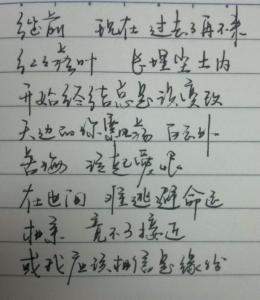 从前 现在 过去了再不来
红红落叶 长埋尘土内
开始终结总是没变改
天边的你飘荡 白云外
苦海 泛起爱恨
在世间 难逃避命运
相亲 竟不可接近
或我应该相信是缘份